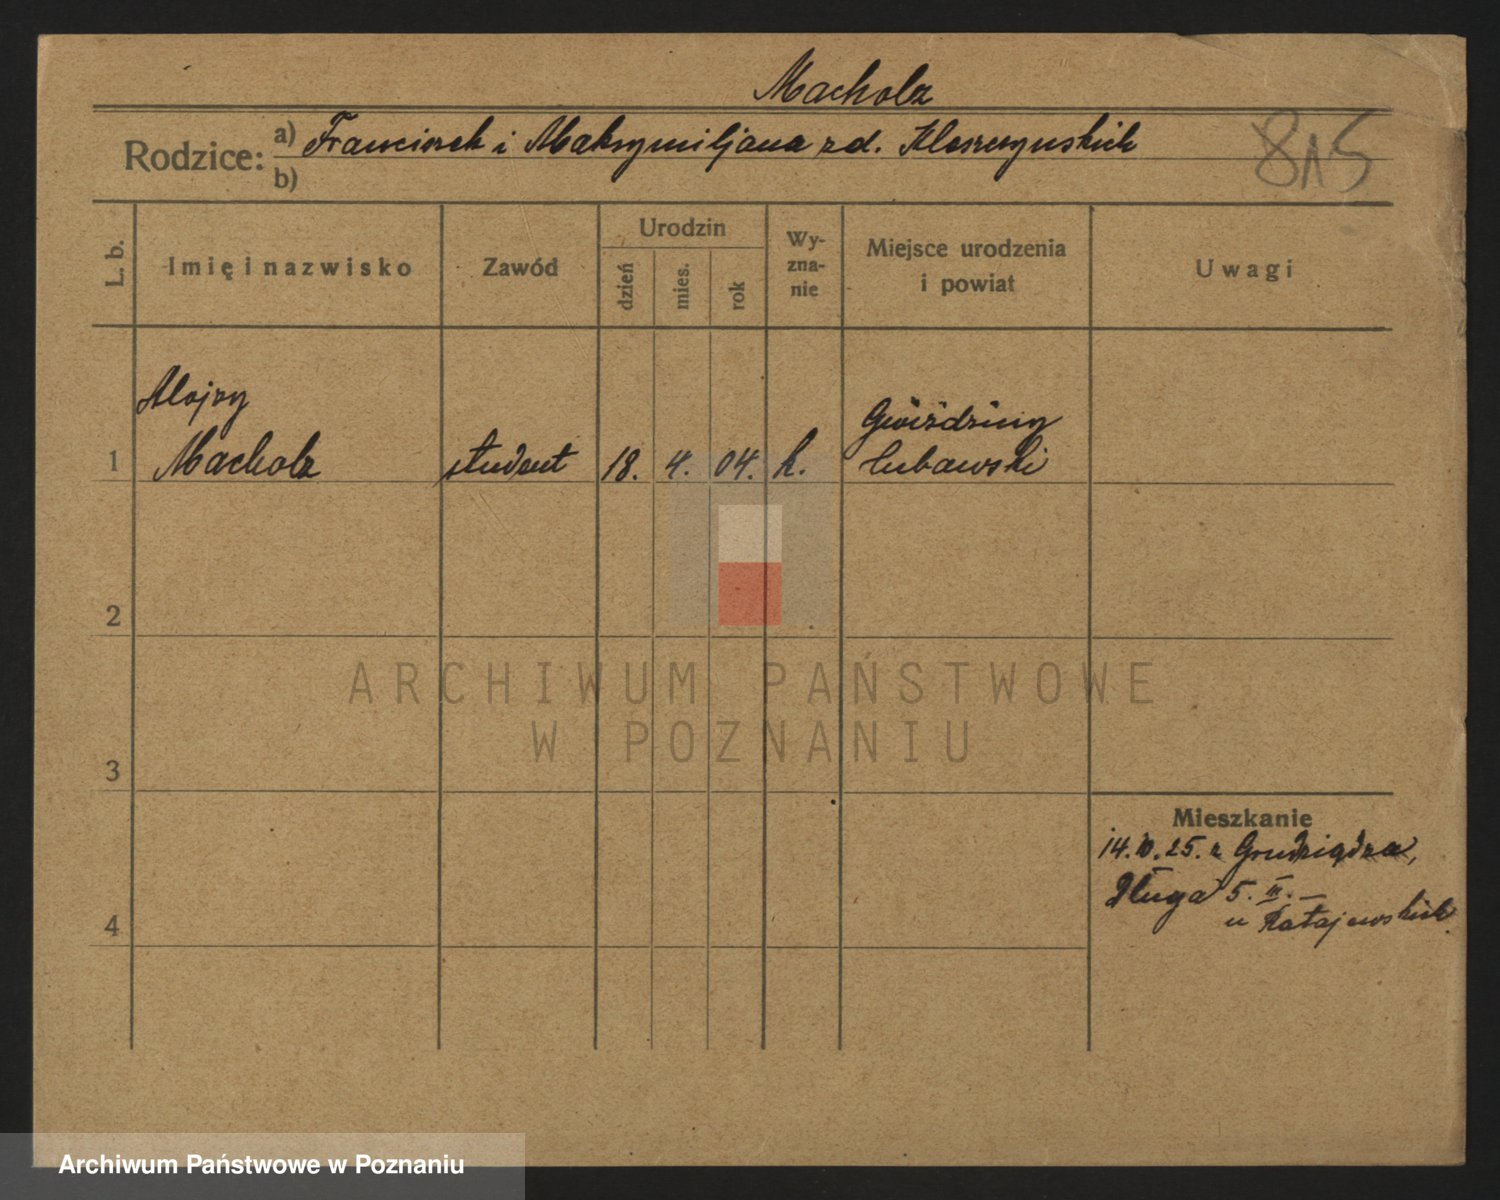 Macholz
Rodzice: a) Franciszek i Maksymiljana z d. Kleszczynskich
b)
815
L. b.
Imię i nazwisko
Zawód
Urodzin
dzień
mies.
rok
Wy-
zna-
nie
Miejsce urodzenia
i powiat
Uwagi
Alojzy
1 Macholz student 18. 4. 04. k.
Gwiździny
lubawski
2
3
4
Mieszkanie
14.10.25. z Grudziądza,
Długa 5. III. –
u Ratajewskich
ARCHIWUM PAŃSTWOWE
W POZNANIU
Archiwum Państwowe w Poznaniu